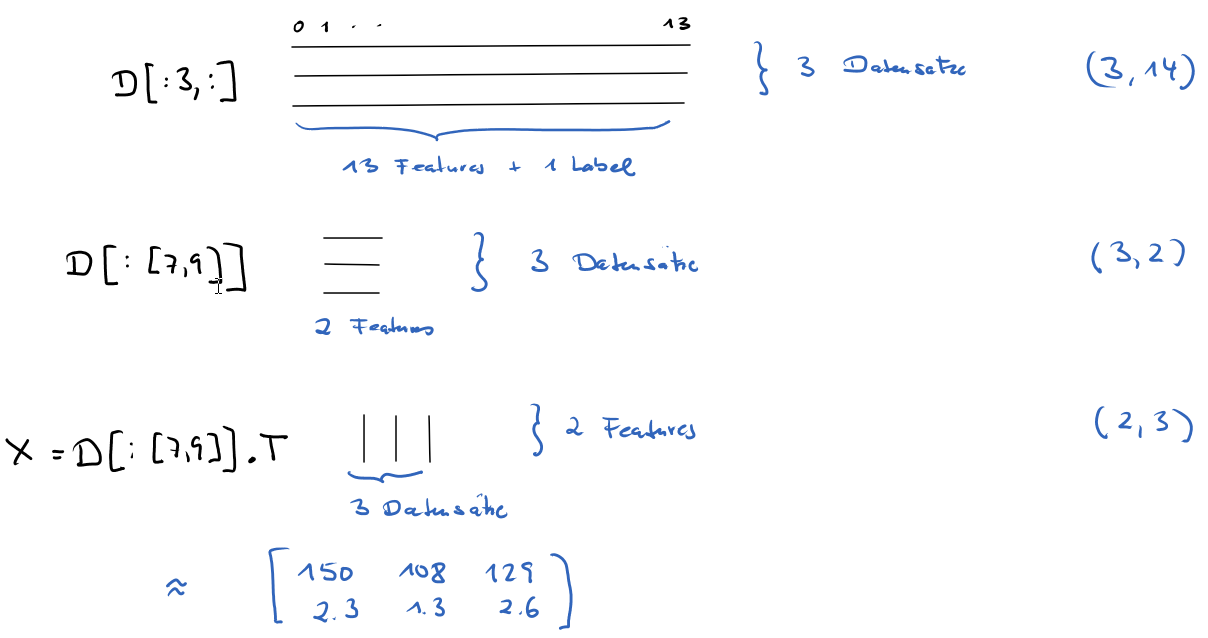 0 1 . . 13
D[:3,:] } 3 Datensätze (3,14)
13 Features + 1 Label
D[: [7,9]] } 3 Datensätze (3,2)
2 Features
X = D[: [7,9]].T } 2 Features (2,3)
3 Datensätze
≈ [ 150 108 129
2.3 1.3 2.6 ]